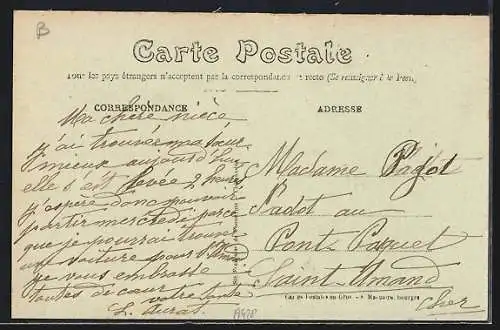 B
Carte Postale
Tous les pays étrangers n'acceptent pas la correspondance au recto (Se renseigner à la Poste)
CORRESPONDANCE
ADRESSE
Ma chère nièce
j'ai trouvée ma sœur
mieux aujourd'hui
elle s'est levée 2 heures
j'espère donc pouvoir
partir mercredi parce
que je pourrai trouver
une voiture pour
je vous embrasse
toutes de cœur
votre tante
L.
Madame Pajot
Padot au
Pont Paquet
Saint Amand
Cher